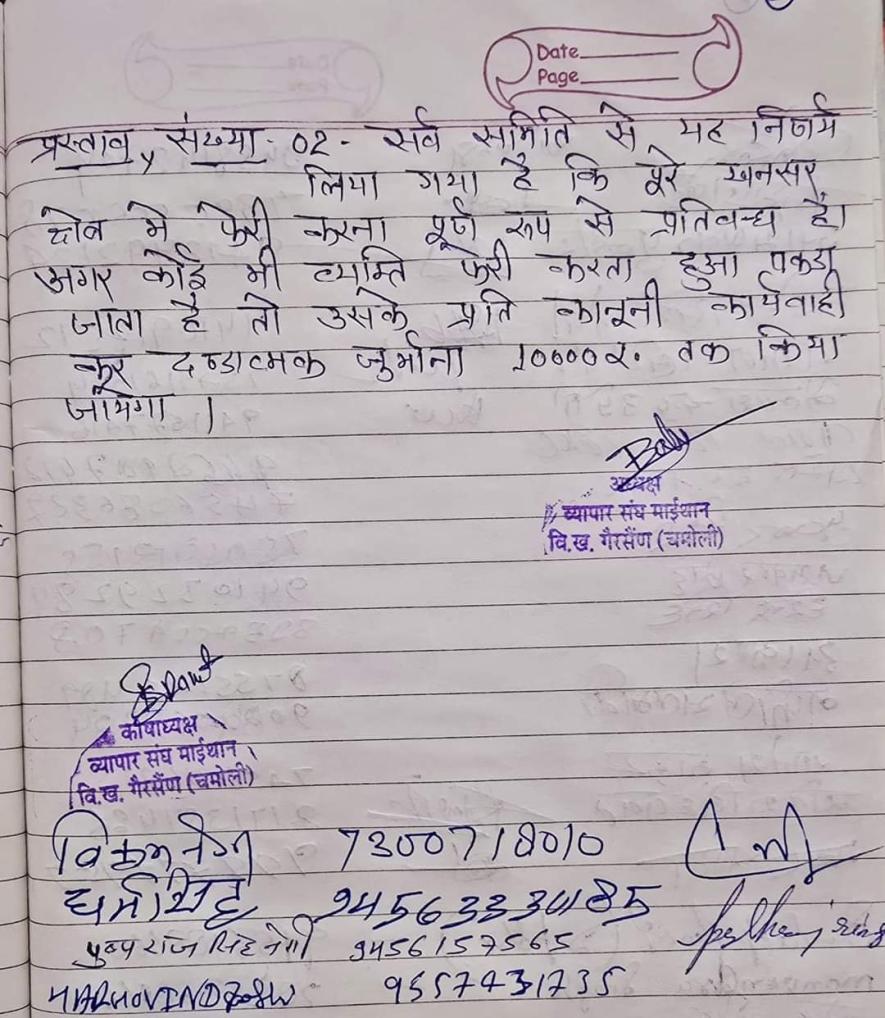 Date
Page
प्रस्ताव, संख्या - 02 - सर्व समिति से यह निर्णय
लिया गया है कि पूरे खनसर
क्षेत्र मे फेरी करना पूर्ण रूप से प्रतिबन्ध है।
अगर कोई भी व्यक्ति फेरी करता हुआ पकडा
जाता है तो उसके प्रति कानूनी कार्यवाही
कर दण्डात्मक जुर्माना 10000रु. तक किया
जायेगा ।
अध्यक्ष
व्यापार संघ माईथान
वि.ख. गैरसैंण (चमोली)
कोषाध्यक्ष
व्यापार संघ माईथान
वि.ख. गैरसैंण (चमोली)
विक्रम नेगी 7300718010
धर्म सिंह
पुष्प राज सिंह नेगी 9456157565
9557431735